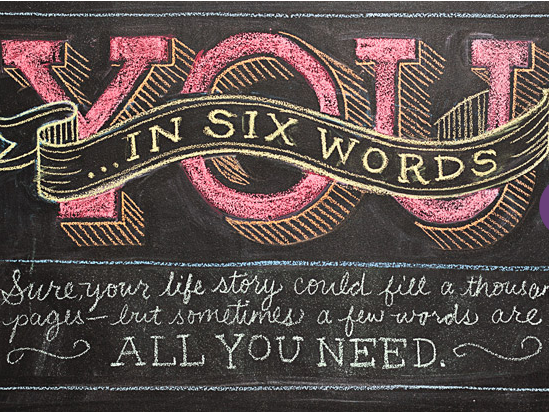 YOU
...IN SIX WORDS
Sure, your life story could fill a thousan
pages—but sometimes a few words are
ALL YOU NEED.